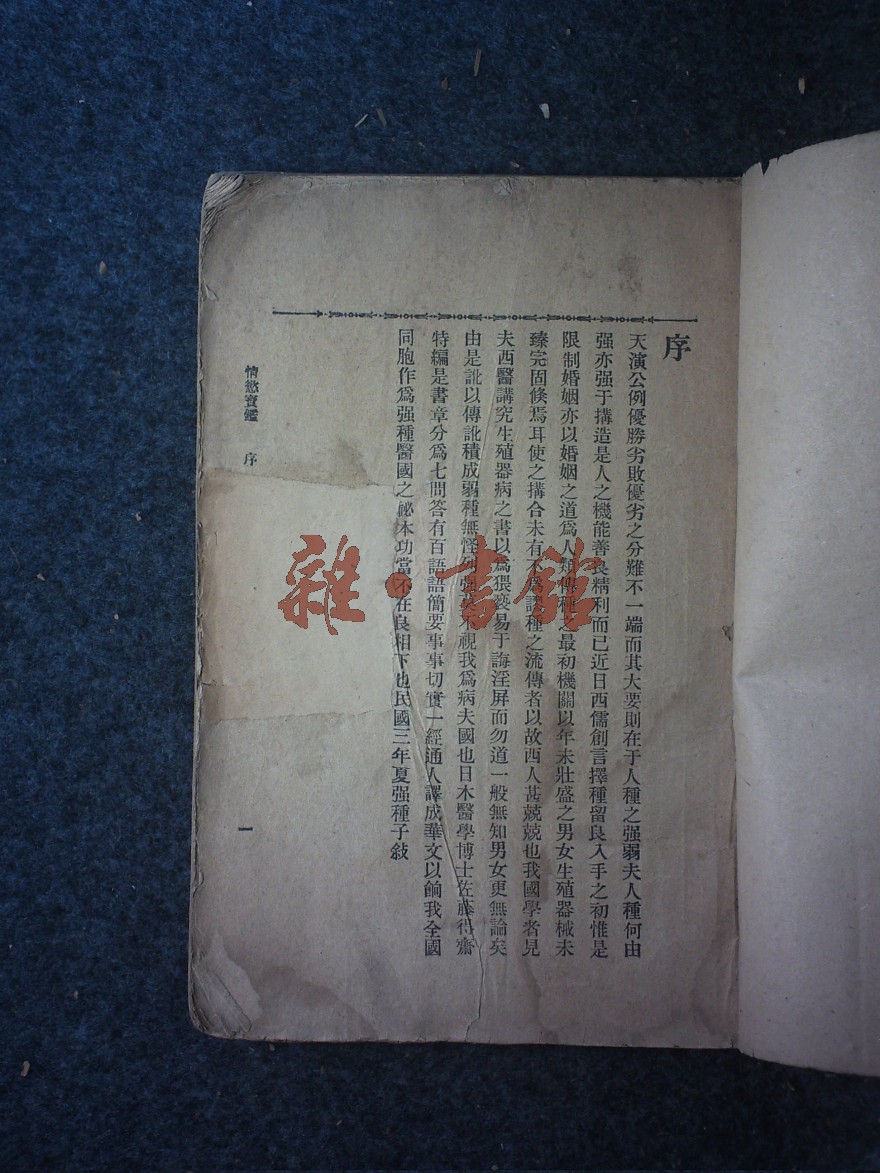 序
天演公例優勝劣敗優劣之分難不一端而其大要則在于人種之强弱夫人種何由
强亦强于搆造是人之機能善良精利而已近日西儒創言擇種留良入手之初惟是
限制婚姻亦以婚姻之道爲人類傳種之最初機關以年未壯盛之男女生殖器械未
臻完固倏焉耳使之搆合未有不爲謬種之流傳者以故西人甚兢兢也我國學者見
夫西醫講究生殖器病之書以爲猥褻易于誨淫屏而勿道一般無知男女更無論矣
由是訛以傳訛積成弱種無怪列强莫不視我爲病夫國也日本醫學博士佐藤得齋
特編是書章分爲七問答有百語語簡要事事切實一經通人譯成華文以餉我全國
同胞作爲强種醫國之秘本功當不在良相下也民國三年夏强種子敍
情慾寶鑑 序
一
雜·書館